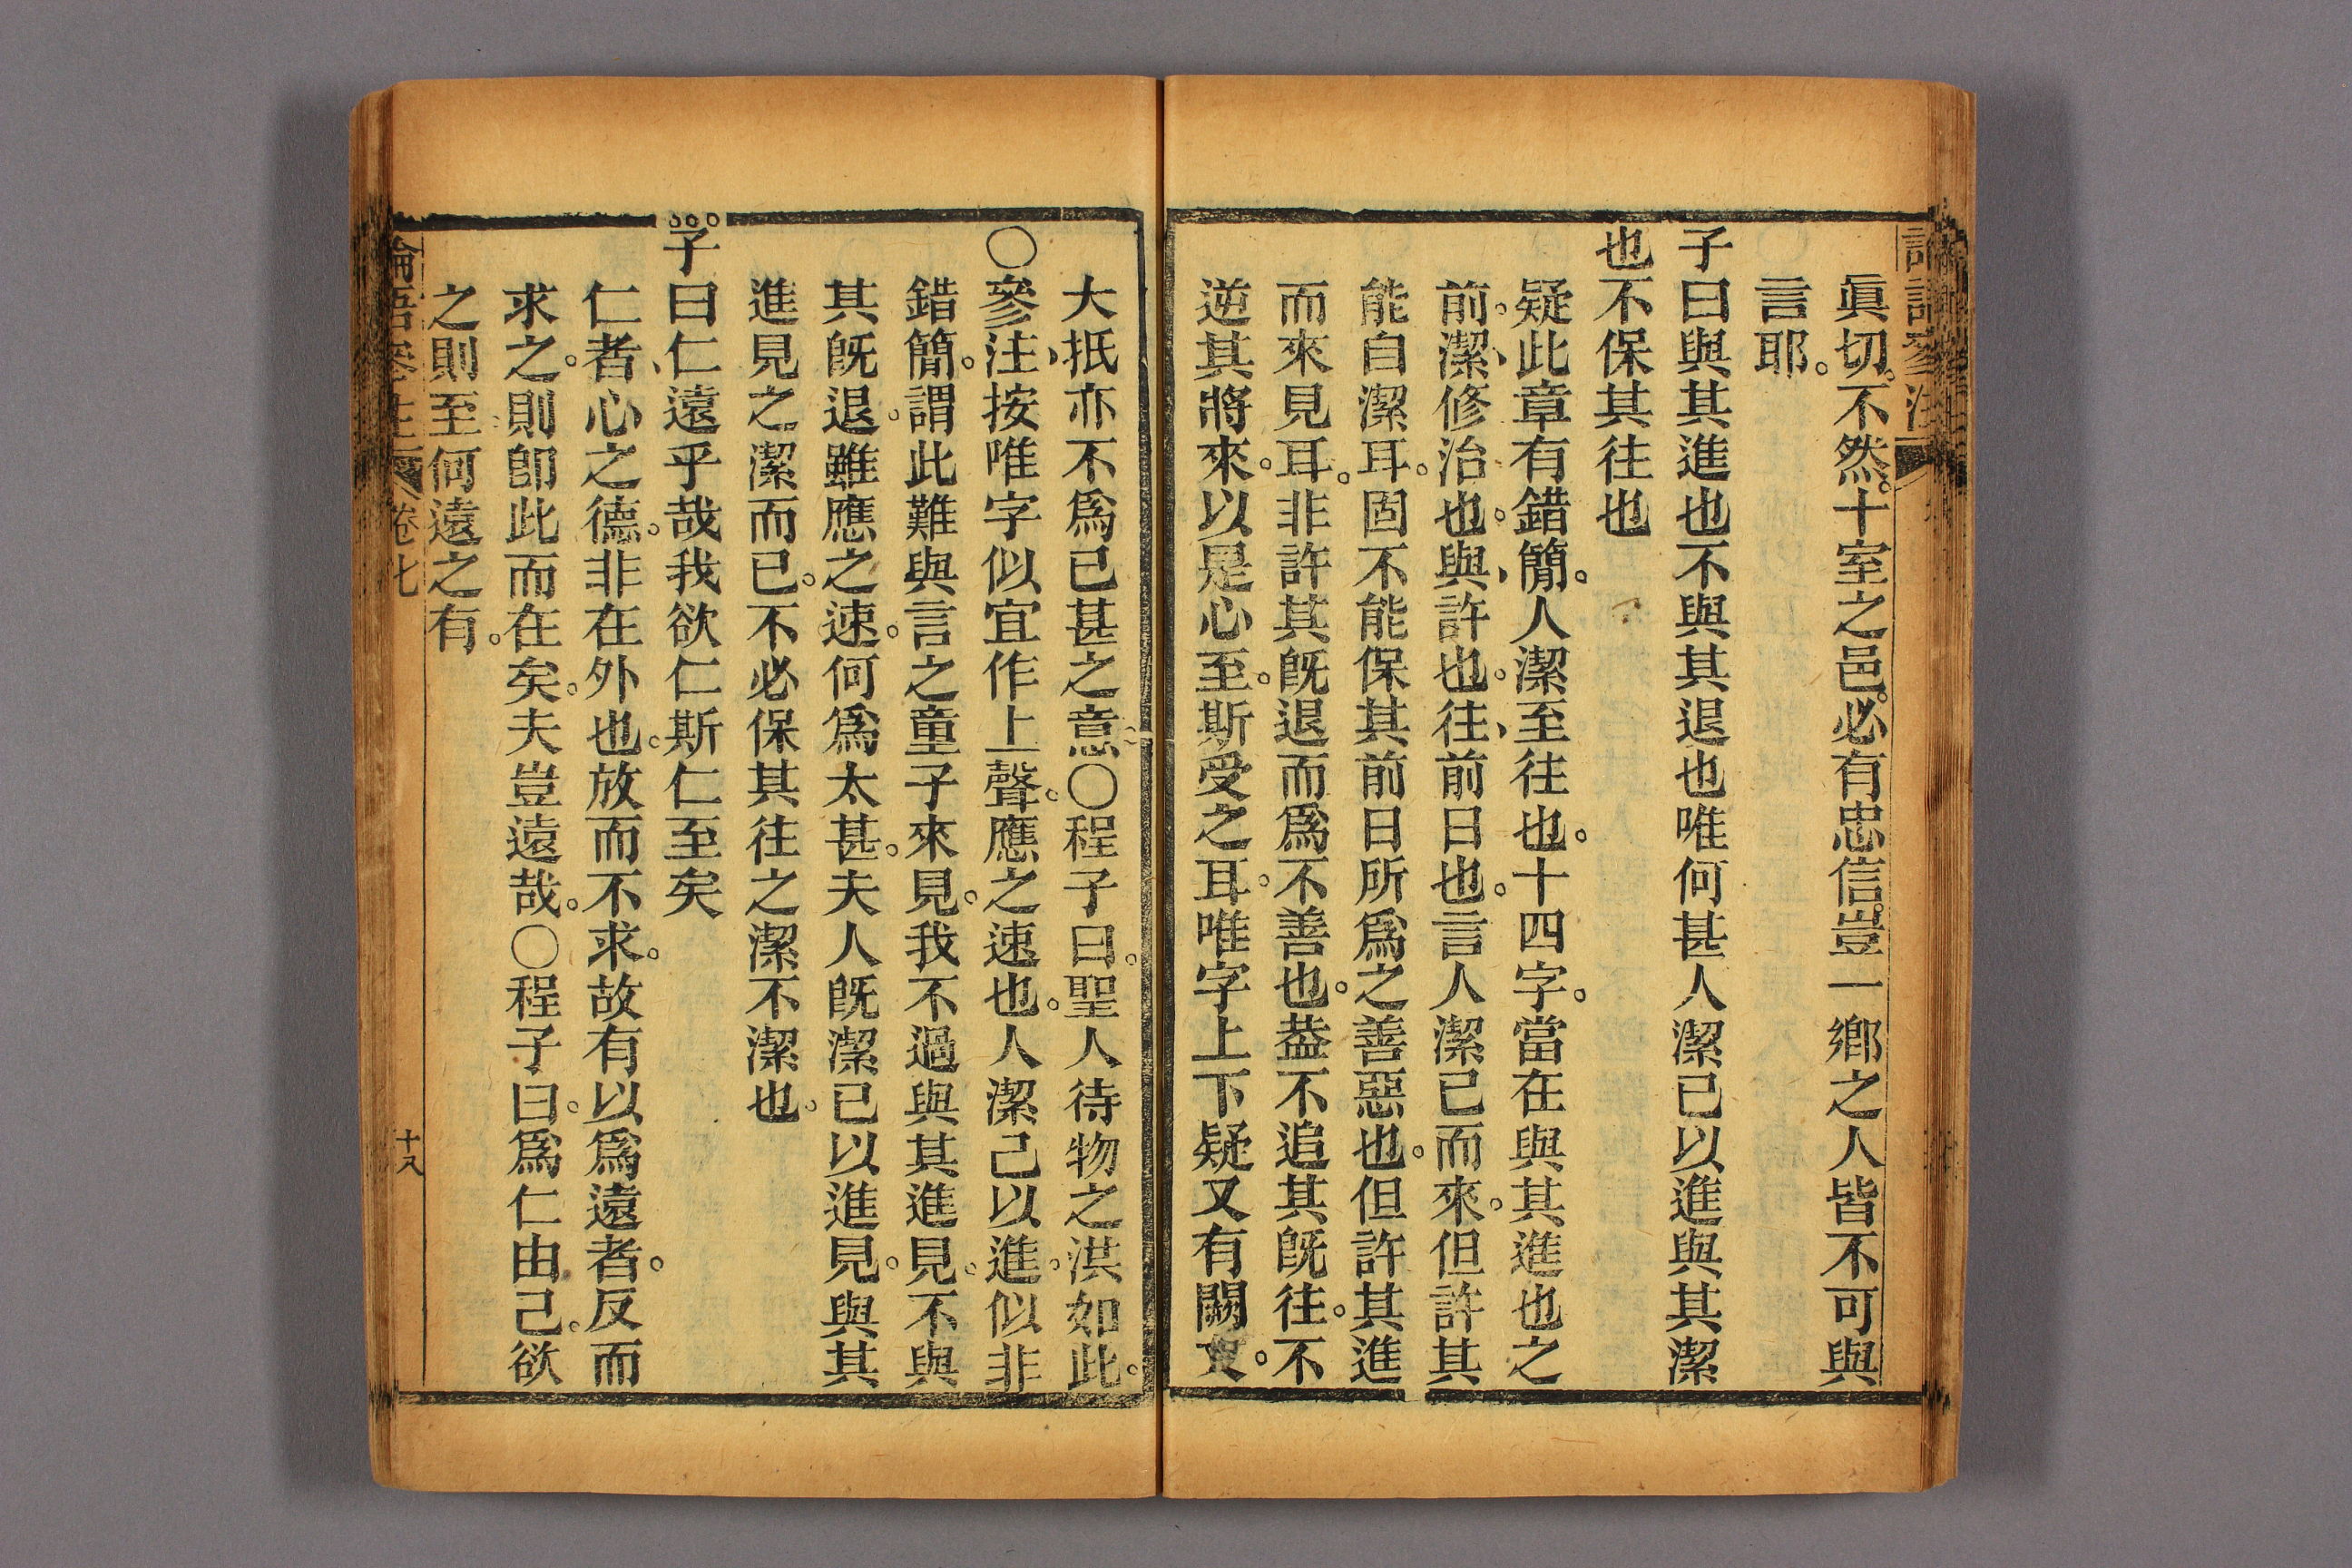 眞切。不然。十室之邑。必有忠信。豈一鄉之人皆不可與
言耶。
子曰與其進也不與其退也唯何甚人潔己以進與其潔
也不保其往也
疑此章有錯簡。人潔至往也。十四字。當在與其進也之
前。潔、修治也。與、許也。往、前日也。言人潔己而來。但許其
能自潔耳。固不能保其前日所爲之善惡也。但許其進
而來見耳。非許其旣退而爲不善也。葢不追其旣往。不
逆其將來。以是心至。斯受之耳。唯字上下疑又有闕文。
大抵亦不爲已甚之意〇程子曰。聖人待物之洪如此。
〇參注、按唯字似宜作上聲。應之速也。人潔己以進。似非
錯簡。謂此難與言之童子來見。我不過與其進見。不與
其旣退。雖應之速。何爲太甚。夫人旣潔己以進見。與其
進見之潔而已。不必保其往之潔不潔也。
子曰仁遠乎哉我欲仁斯仁至矣
仁者、心之德。非在外也。放而不求。故有以爲遠者。反而
求之。則卽此而在矣。夫豈遠哉。〇程子曰。爲仁由己。欲
之則至何遠之有。
卷七
十八